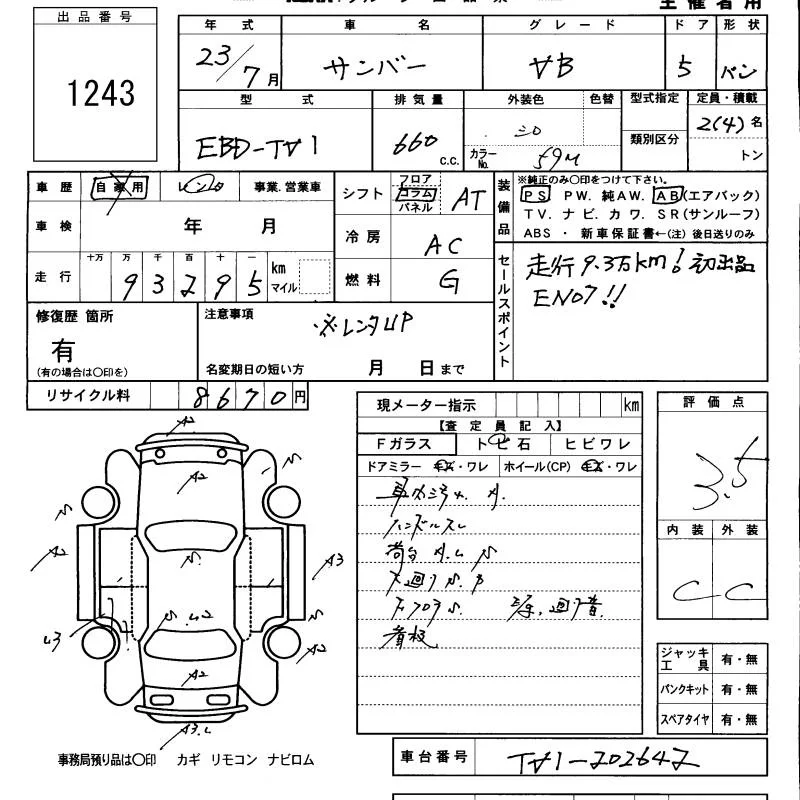 出品番号
1243
年式 車名 グレード ドア 形状
23/7月 サンバー VB 5 バン
型式 排気量 外装色 色替 型式指定 定員・積載
EBD-TV1 660 c.c. シロ カラーNo. 59M 類別区分 2(4)名
トン
車歴 自家用 レンタ 事業.営業車
車検 年 月
走行 十万 万 千 百 十 一 km マイル
93295
シフト フロア コラム パネル AT
冷房 AC
燃料 G
装備品
※純正のみ〇印をつけて下さい。
PS PW. 純AW. AB(エアバック)
TV. ナビ. カワ. SR(サンルーフ)
ABS ・ 新車保証書←(注) 後日送りのみ
セールスポイント
走行9.3万km! 初出品
EN07!!
修復歴 箇所
有
(有の場合は〇印を)
注意事項
※レンタUP
名変期日の短い方 月 日まで
リサイクル料 8670円
現メーター指示 km
【査定員記入】
Fガラス トビ石 ヒビワレ
ドアミラー キズ・ワレ ホイール(CP) キズ・ワレ
ハンドルスレ
看板
評価点
3.5
内装 外装
C C
ジャッキ工具 有・無
パンクキット 有・無
スペアタイヤ 有・無
A2
A2
A2
A3
A2
A2
事務局預り品は〇印 カギ リモコン ナビロム
車台番号 TV1-202642